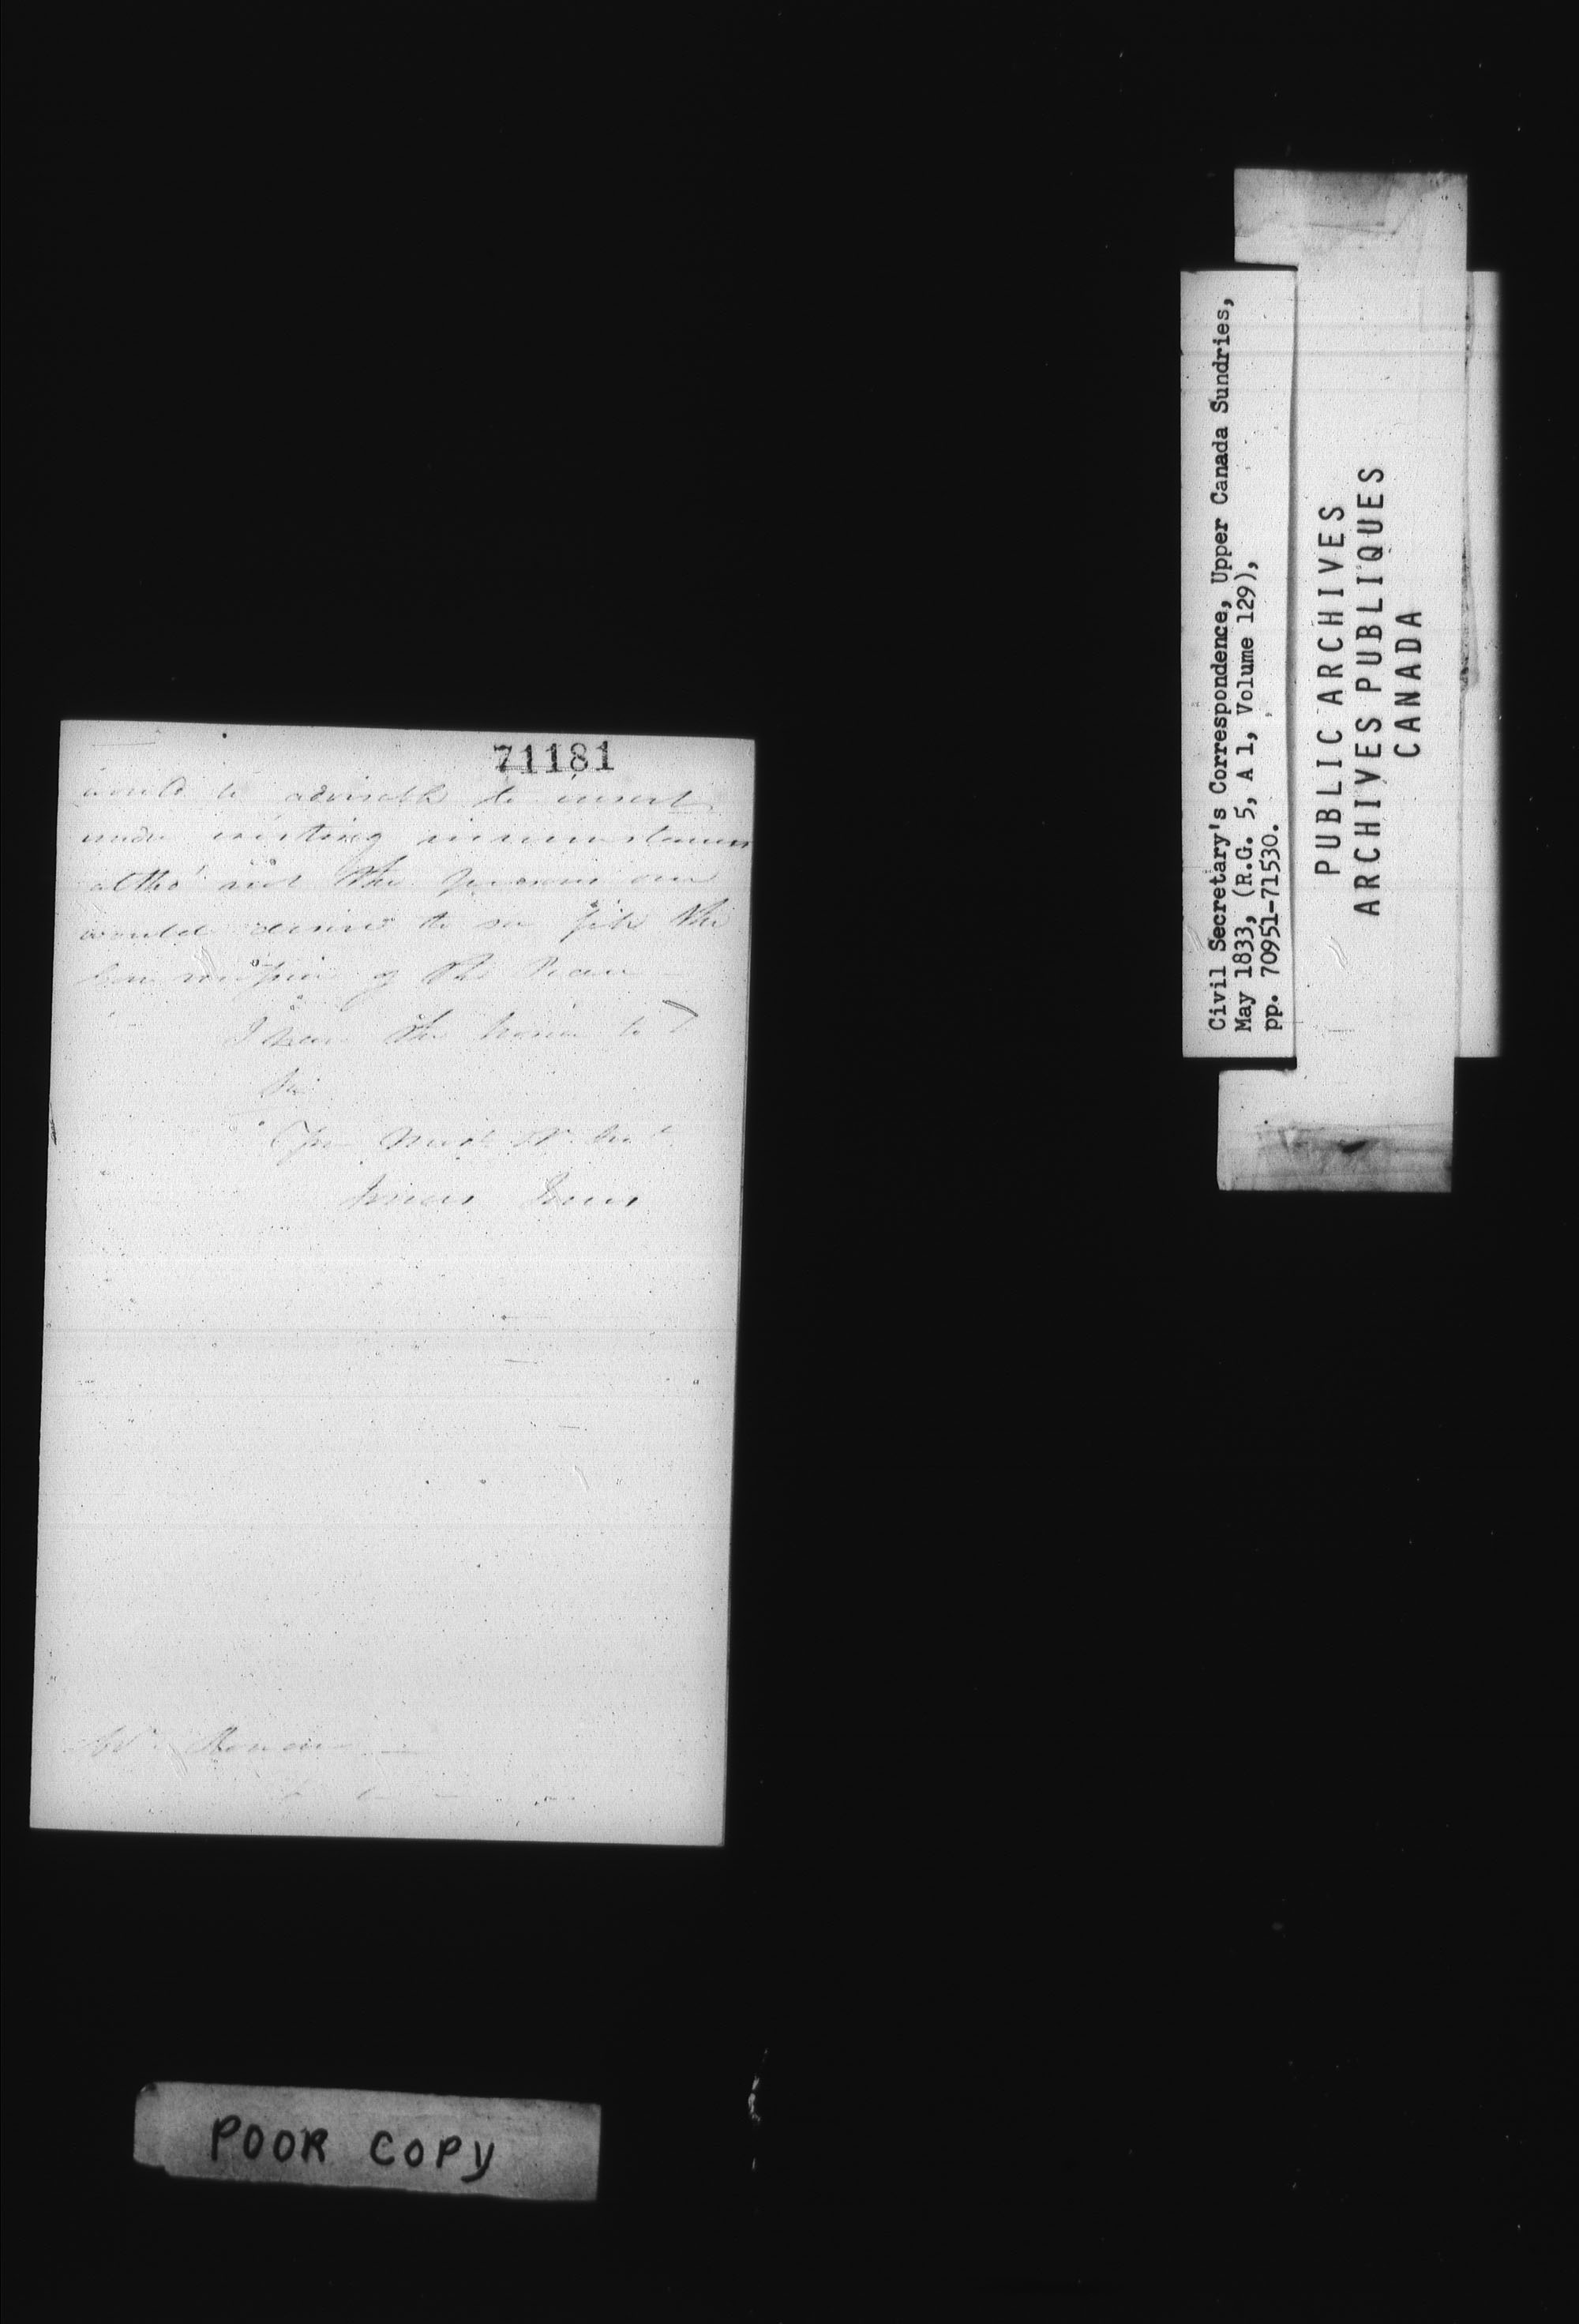 71181
would be advisable to insert
under existing circumstances
altho' not the persons one
would desire to see fill the
of the Peace
I have the honor to
Sir
Your most
Mr. Rowan
Civil Secretary's Correspondence, Upper Canada Sundries,
May 1833, (R.G. 5, A 1, Volume 129),
pp. 70951-71530.
PUBLIC ARCHIVES
ARCHIVES PUBLIQUES
CANADA
POOR COPY